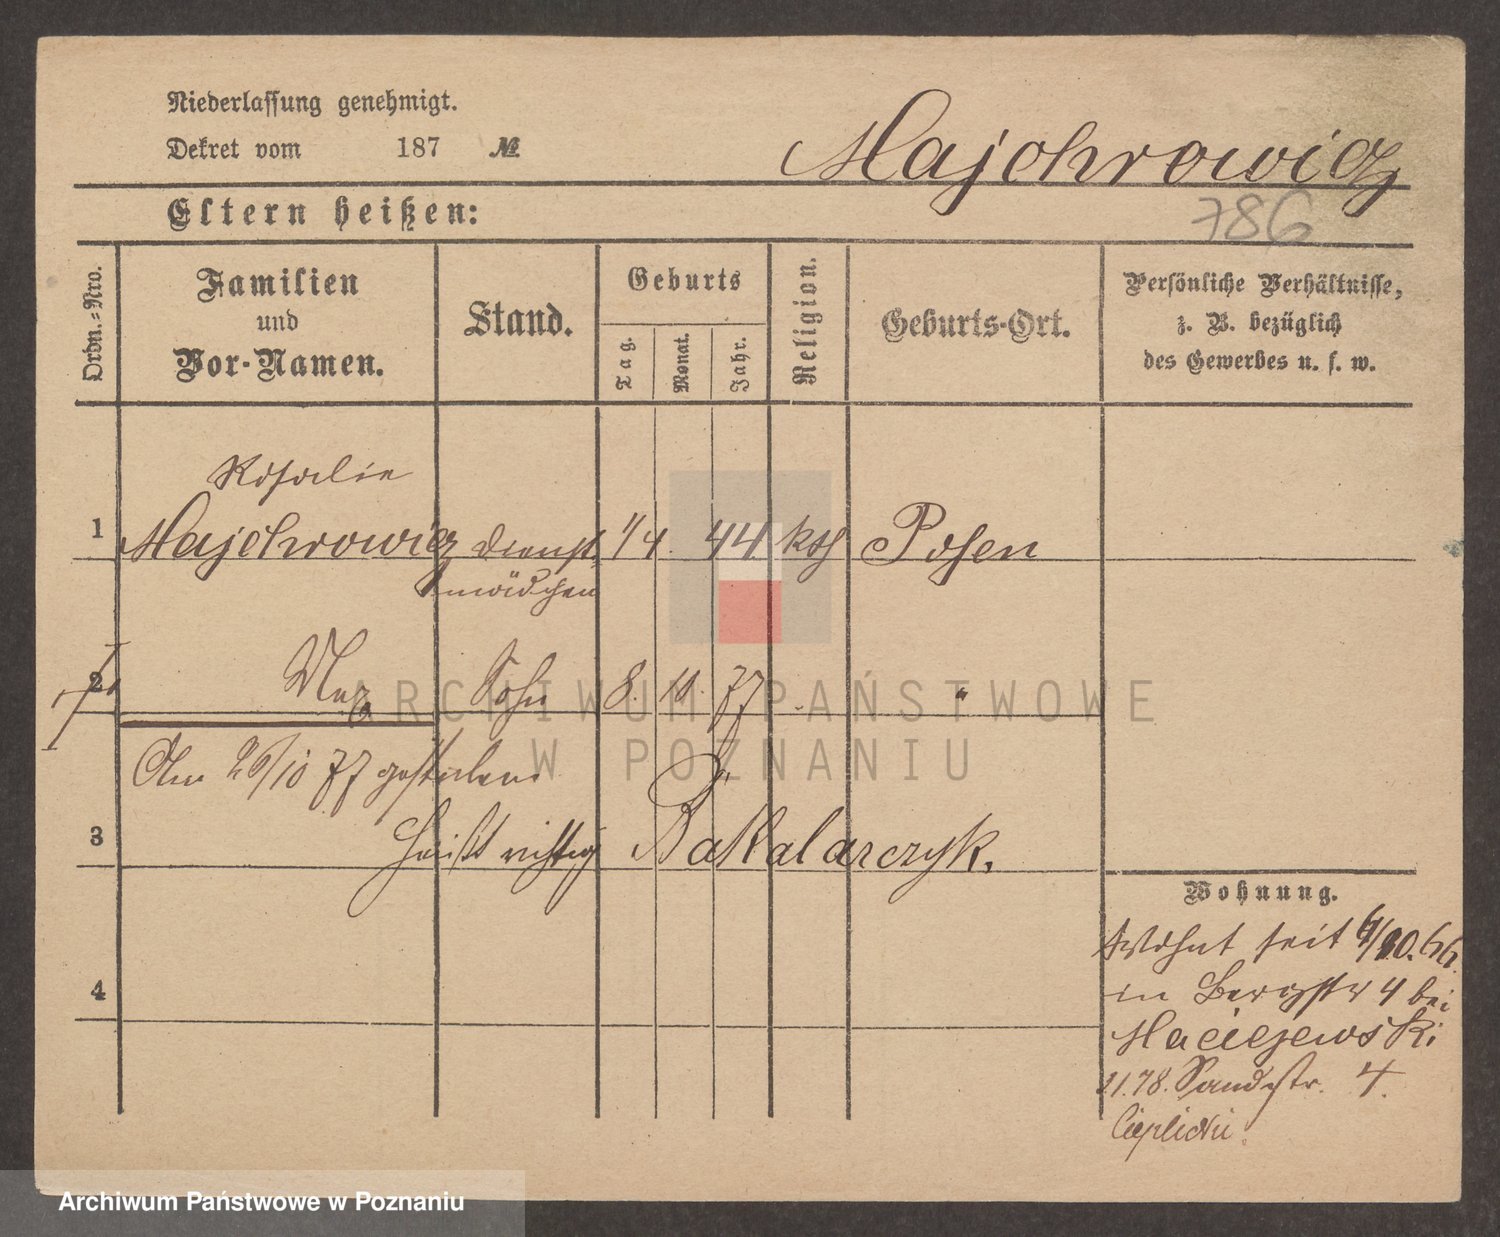 Niederlassung genehmigt.
Dekret vom 187 №
Majchrowicz
786
Eltern heißen:
Ordn.-Nro.
Familien
und
Vor-Namen.
Stand.
Geburts
Tag.
Monat.
Jahr.
Religion.
Geburts-Ort.
Persönliche Verhältnisse,
z. B. bezüglich
des Gewerbes u. s. w.
Rosalie
1 Majchrowicz Dienst- 1/4. 44 kth Posen
mädchen
2 Sohn 8. 10. 77 "
ARCHIWUM PAŃSTWOWE
W POZNANIU
Am 26/10 77 gestorben
3 heißt richtig Bakalarczyk.
Wohnung.
4
Wohnt seit /10. 66.
in Bergstr 4 bei
Maciejewski
1.78. Sandstr. 4.
Archiwum Państwowe w Poznaniu